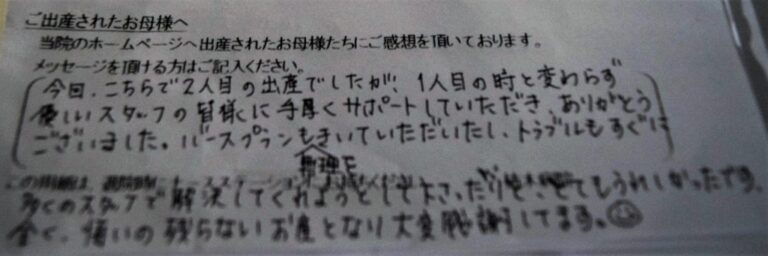 ご出産されたお母様へ
当院のホームページへ出産されたお母様たちにご感想を頂いております。
メッセージを頂ける方はご記入ください。
今回、こちらで2人目の出産でしたが、1人目の時と変わらず
優しいスタッフの皆様に手厚くサポートしていただき、ありがとう
ございました。バースプランも無理をきいていただいたし、トラブルもすぐに
この用紙は、退院時にナースステーションに
多くのスタッフで解決してくれようとして下さったりと、とてもうれしかったです。
全く、悔いの残らないお産となり大変感謝してます。